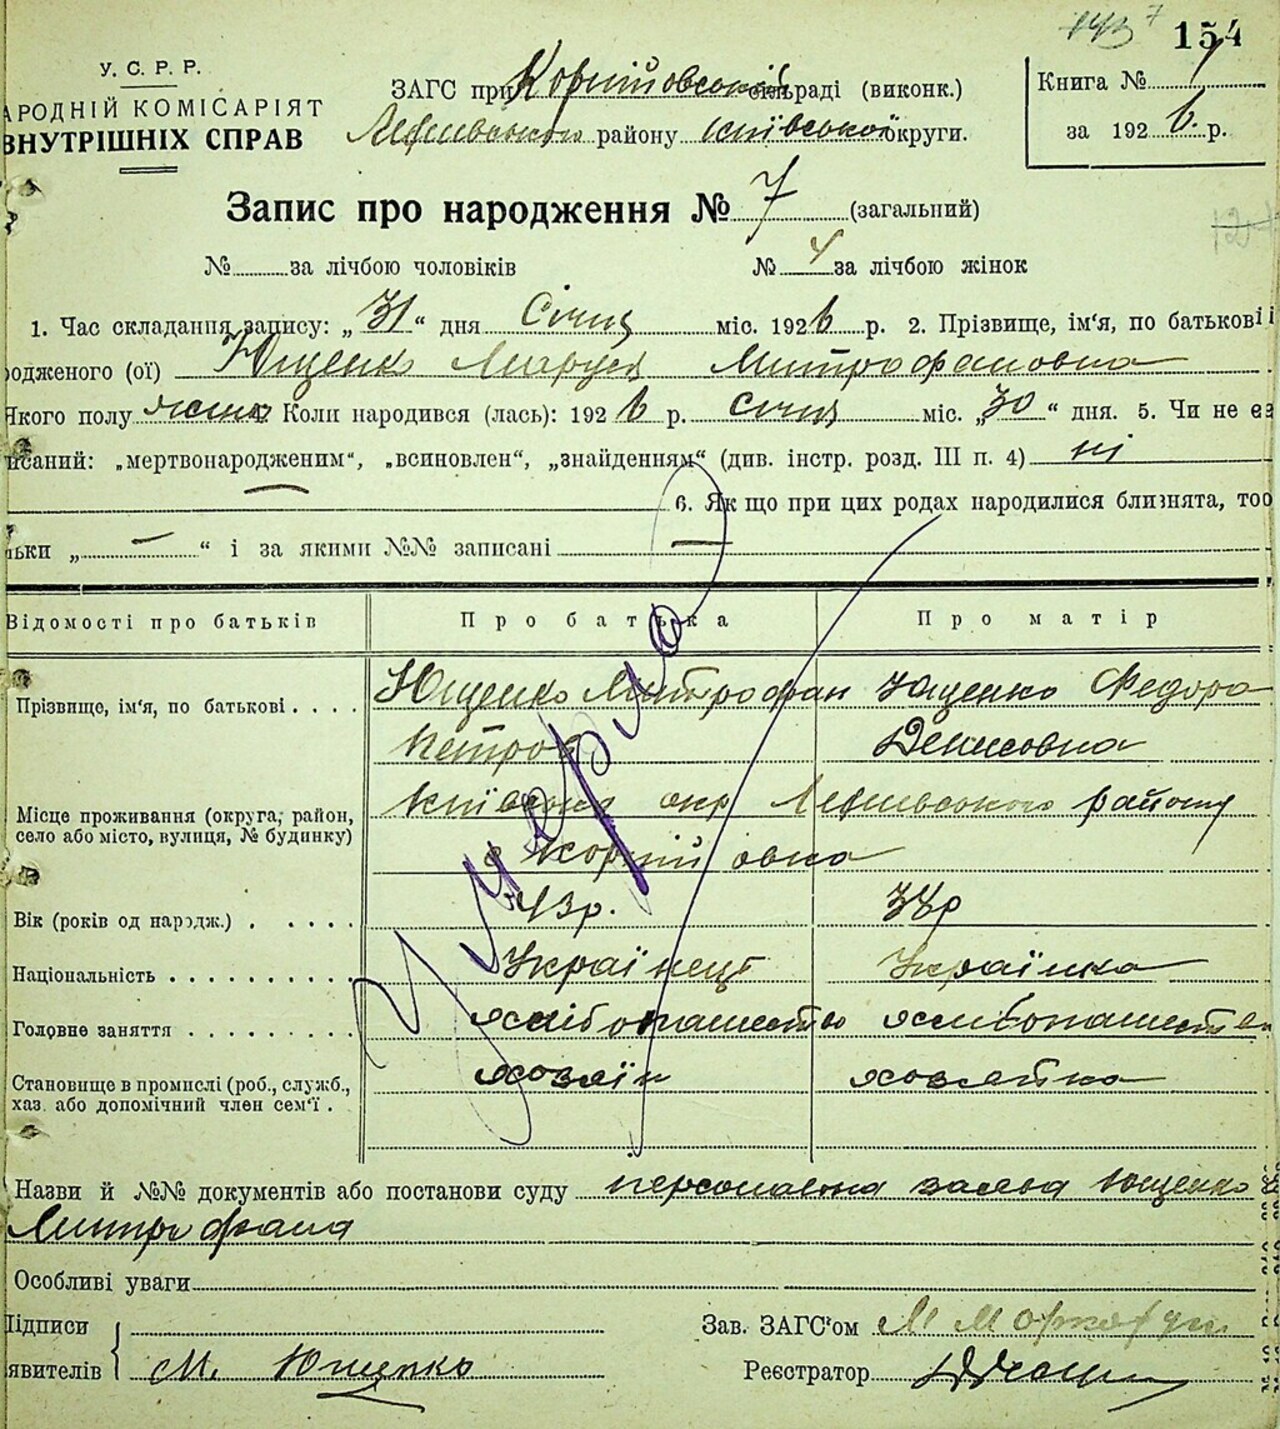 154
У. С. Р. Р.
АРОДНІЙ КОМІСАРІЯТ
ВНУТРІШНІХ СПРАВ
ЗАГС при Корнійовській сільраді (виконк.)
району київської округи.
Книга №
за 1926 р.
Запис про народження № 7 (загальний)
№ за лічбою чоловіків
№ 4 за лічбою жінок
1. Час складання запису: „31“ дня Січня міс. 1926 р. 2. Прізвище, ім'я, по батькові і
родженого (ої) Ющенко Маруся Митрофановна
Якого полу жіноч Коли народився (лась): 1926 р. січня міс. „30“ дня. 5. Чи не є за
писаний: „мертвонародженим“, „всиновлен“, „знайденням“ (див. інстр. розд. III п. 4) ні
6. Як що при цих родах народилися близнята, то с
льки „ — “ і за якими №№ записані —
Відомості про батьків Про батька Про матір
Прізвище, ім'я, по батькові . . . . Ющенко Митрофан Ющенко Федора
Петров Денисовна
Місце проживання (округа, район,
село або місто, вулиця, № будинку)
окр району
с Корнійовка
Вік (років од народж.) . . . . . 43р. 34р
Національність . . . . . . . . . . Українець Українка
Головне заняття . . . . . . . . . хлібопашество хлібопашество
Становище в промислі (роб., служб.,
хаз. або допомічний член сем'ї .
хозяїн хозяйка
Умерла
Назви й №№ документів або постанови суду персональна заява Ющенко
Митрофана
Особливі уваги
Підписи
явителів М. Ющенко
Зав. ЗАГС'ом
Реєстратор